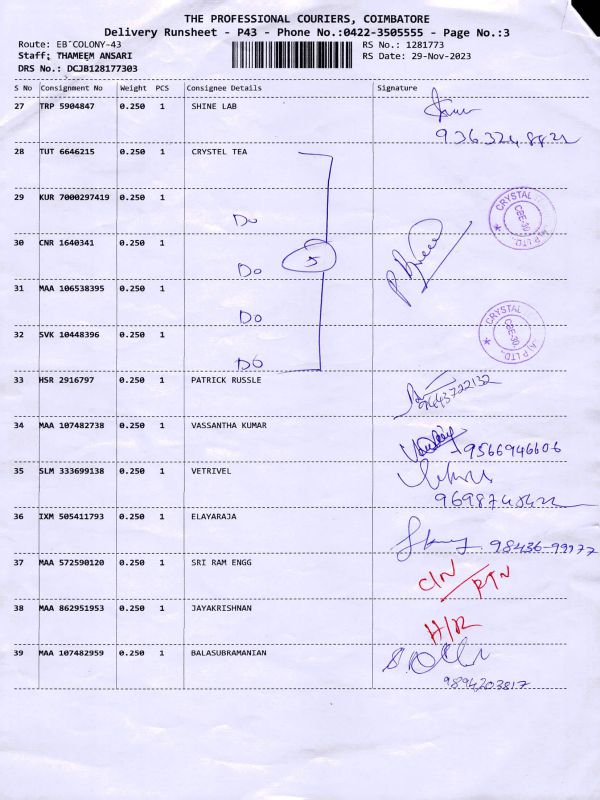 THE PROFESSIONAL COURIERS, COIMBATORE
Delivery Runsheet - P43 - Phone No.:0422-3505555 - Page No.:3
Route: EB COLONY-43 RS No.: 1281773
Staff: THAMEEM ANSARI RS Date: 29-Nov-2023
DRS No.: DCJB128177303
S No Consignment No Weight PCS Consignee Details Signature
27 TRP 5904847 0.250 1 SHINE LAB
28 TUT 6646215 0.250 1 CRYSTEL TEA
29 KUR 7000297419 0.250 1
Do
CRYSTAL P LTD. CBE-30 *
30 CNR 1640341 0.250 1
Do 5
31 MAA 106538395 0.250 1
Do
CRYSTAL P LTD. CBE-30 *
32 SVK 10448396 0.250 1
Do
33 HSR 2916797 0.250 1 PATRICK RUSSLE
9443722132
34 MAA 107482738 0.250 1 VASSANTHA KUMAR
9566946606
35 SLM 333699138 0.250 1 VETRIVEL
36 IXM 505411793 0.250 1 ELAYARAJA
37 MAA 572590120 0.250 1 SRI RAM ENGG
C/N / RTN
38 MAA 862951953 0.250 1 JAYAKRISHNAN
H/R
39 MAA 107482959 0.250 1 BALASUBRAMANIAN
9894203817